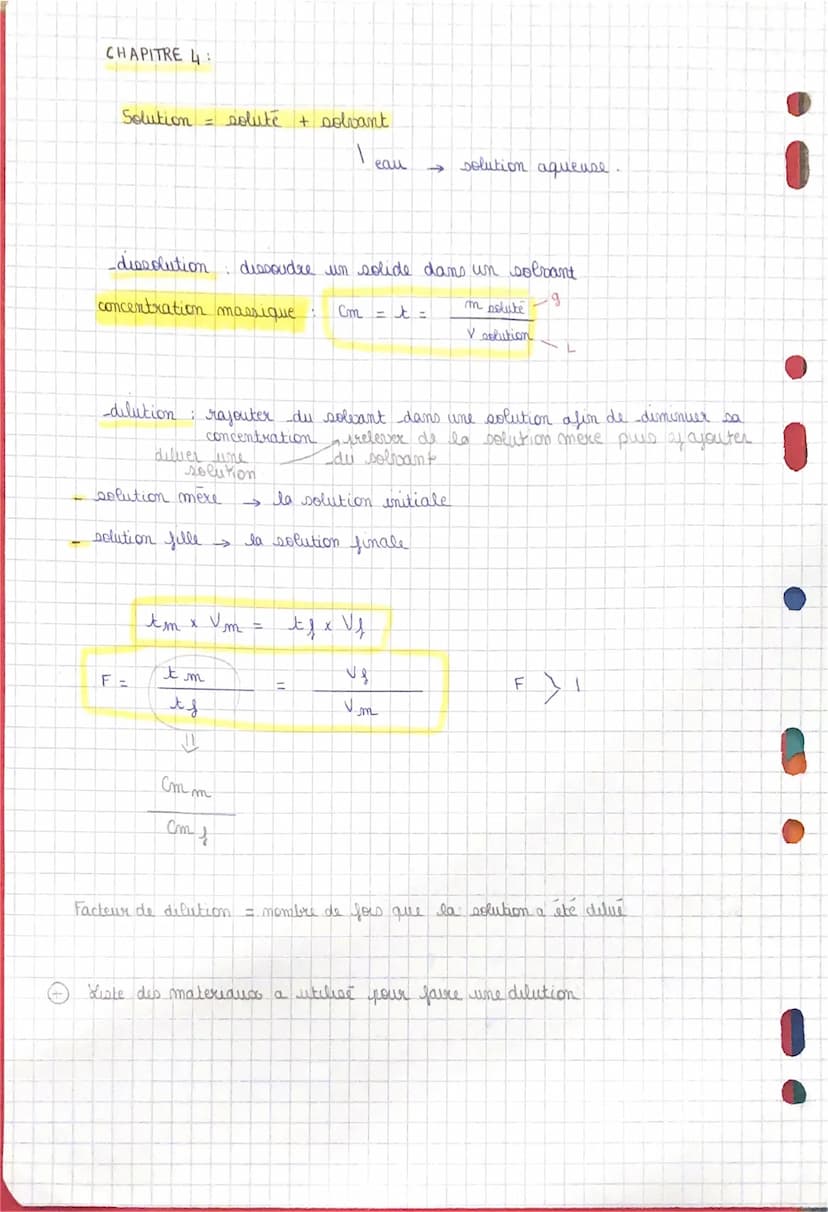 CHAPITRE 4 :
Solution = soluté + solvant
eau → solution aqueuse.
dissolution : dissoudre un solide dans un solvant
concentration massique : Cm = t = m soluté / V solution
g
L
dilution : rajouter du solvant dans une solution afin de diminuer sa
concentration prelever de la solution mère puis y ajouter
diluer une du solvant
solution
- solution mère → la solution initiale
- solution fille → la solution finale
tm x Vm = tf x Vf
F = tm / tf = Vf / Vm F > 1
⇓
Cm m / Cm f
Facteur de dilution = nombre de fois que la solution a été dilué
+ Liste des materiaux a utilisé pour faire une dilution